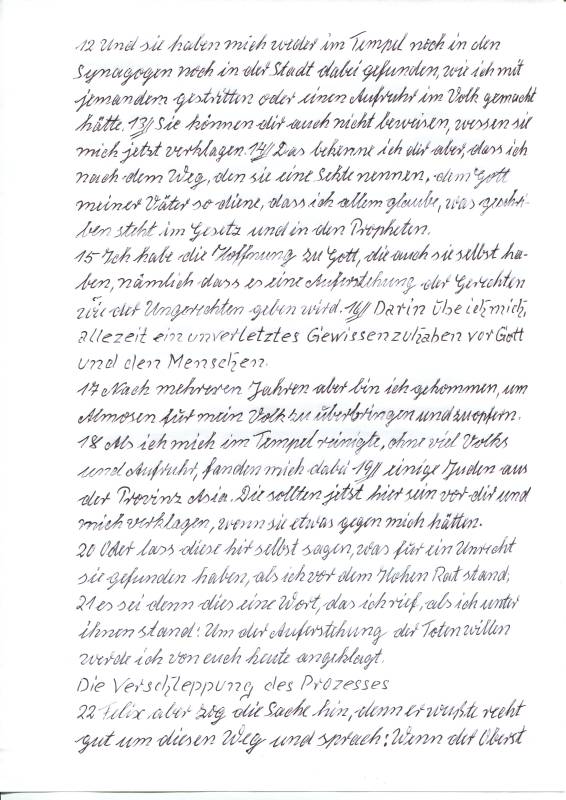 12 Und sie haben mich weder im Tempel noch in den
Synagogen noch in der Stadt dabei gefunden, wie ich mit
jemandem gestritten oder einen Aufruhr im Volk gemacht
hätte. 13// Sie können dir auch nicht beweisen, wessen sie
mich jetzt verklagen. 14// Das bekenne ich dir aber, dass ich
nach dem Weg, den sie eine Sekte nennen, dem Gott
meiner Väter so diene, dass ich allem glaube, was geschrie-
ben steht im Gesetz und in den Propheten.
15 Ich habe die Hoffnung zu Gott, die auch sie selbst ha-
ben, nämlich dass es eine Auferstehung der Gerechten
wie der Ungerechten geben wird. 16// Darin übe ich mich,
allezeit ein unverletztes Gewissen zu haben vor Gott
und den Menschen.
17 Nach mehreren Jahren aber bin ich gekommen, um
Almosen für mein Volk zu überbringen und zu opfern.
18 Als ich mich im Tempel reinigte, ohne viel Volks
und Aufruhr, fanden mich dabei 19// einige Juden aus
der Provinz Asia. Die sollten jetzt hier sein vor dir und
mich verklagen, wenn sie etwas gegen mich hätten.
20 Oder lass diese hir selbst sagen, was für ein Unrecht
sie gefunden haben, als ich vor dem Hohen Rat stand;
21 es sei denn dies eine Wort, das ich rief, als ich unter
ihnen stand: Um der Auferstehung der Toten willen
werde ich von euch heute angeklagt.
Die Verschleppung des Prozesses
22 Felix aber zog die Sache hin, denn er wußte recht
gut um diesen Weg und sprach: Wenn der Oberst